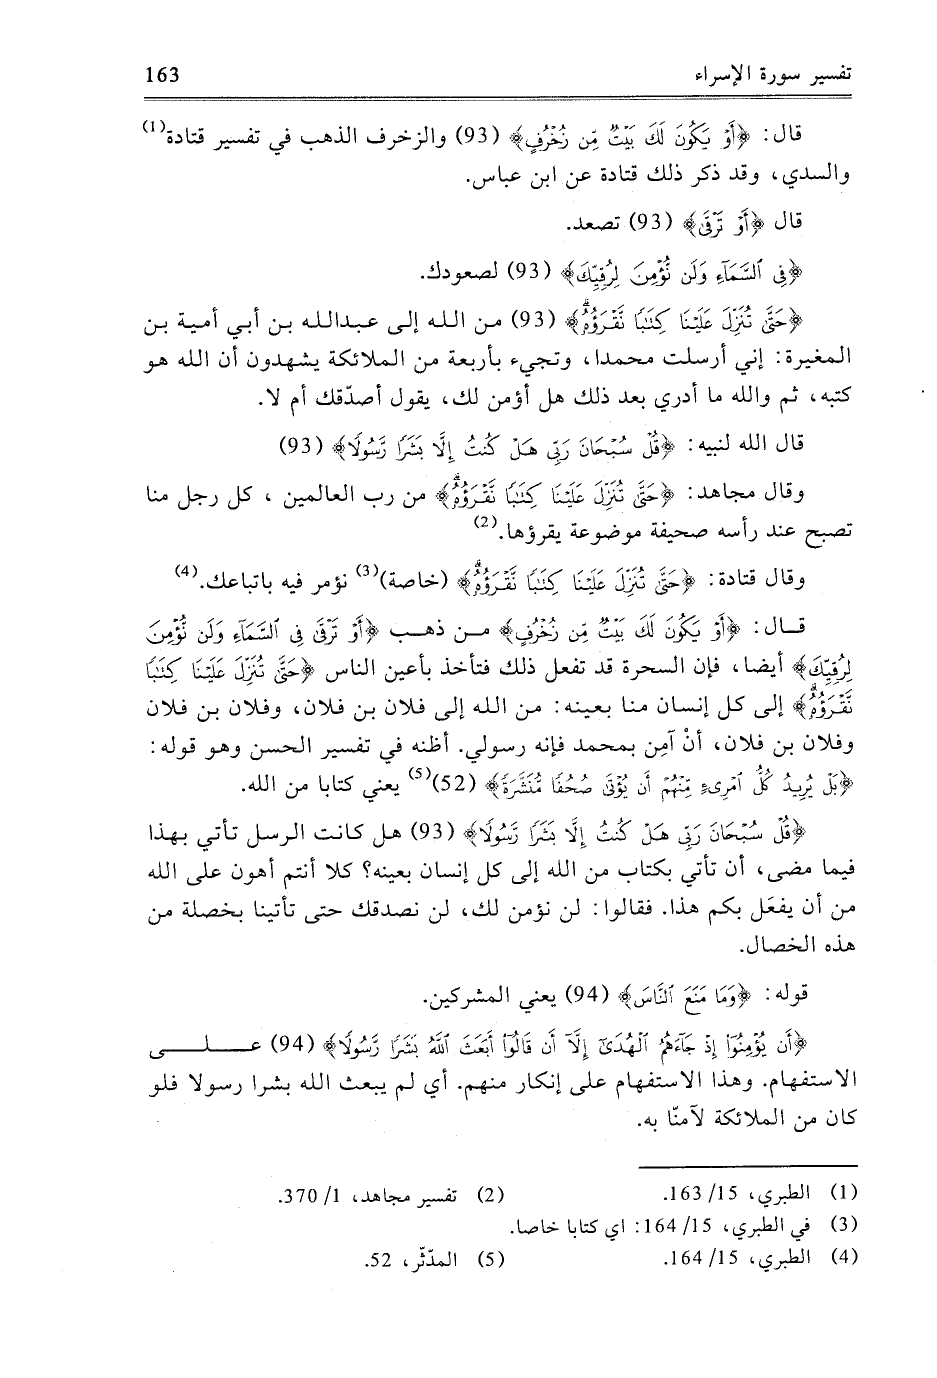 تفسير سورة الإسراء 163
قال: ﴿أَوْ يَكُونَ لَكَ بَيْتٌ مِّن زُخْرُفٍ﴾ (93) والزخرف الذهب في تفسير قتادة(1)
والسدي، وقد ذكر ذلك قتادة عن ابن عباس.
قال ﴿أَوْ تَرْقَىٰ﴾ (93) تصعد.
﴿فِى ٱلسَّمَآءِ وَلَن نُّؤْمِنَ لِرُقِيِّكَ﴾ (93) لصعودك.
﴿حَتَّىٰ تُنَزِّلَ عَلَيْنَا كِتَٰبًا نَّقْرَؤُهُۥ﴾ (93) من الله إلى عبدالله بن أبي أمية بن
المغيرة: إني أرسلت محمدا، وتجيء بأربعة من الملائكة يشهدون أن الله هو
كتبه، ثم والله ما أدري بعد ذلك هل أؤمن لك، يقول أصدّقك أم لا.
قال الله لنبيه: ﴿قُلْ سُبْحَانَ رَبِّى هَلْ كُنتُ إِلَّا بَشَرًا رَّسُولًا﴾ (93)
وقال مجاهد: ﴿حَتَّىٰ تُنَزِّلَ عَلَيْنَا كِتَٰبًا نَّقْرَؤُهُۥ﴾ من رب العالمين ، كل رجل منا
تصبح عند رأسه صحيفة موضوعة يقرؤها.(2)
وقال قتادة: ﴿حَتَّىٰ تُنَزِّلَ عَلَيْنَا كِتَٰبًا نَّقْرَؤُهُۥ﴾ (خاصة)(3) نؤمر فيه باتباعك.(4)
قــال: ﴿أَوْ يَكُونَ لَكَ بَيْتٌ مِّن زُخْرُفٍ﴾ مــن ذهــب ﴿أَوْ تَرْقَىٰ فِى ٱلسَّمَآءِ وَلَن نُّؤْمِنَ
لِرُقِيِّكَ﴾ أيضا، فإن السحرة قد تفعل ذلك فتأخذ بأعين الناس ﴿حَتَّىٰ تُنَزِّلَ عَلَيْنَا كِتَٰبًا
نَّقْرَؤُهُۥ﴾ إلى كل إنسان منا بعينه: من الله إلى فلان بن فلان، وفلان بن فلان
وفلان بن فلان، أنْ آمِن بمحمد فإنه رسولي. أظنه في تفسير الحسن وهو قوله:
﴿بَلْ يُرِيدُ كُلُّ ٱمْرِئٍ مِّنْهُمْ أَن يُؤْتَىٰ صُحُفًا مُّنَشَّرَةً﴾ (52)(5) يعني كتابا من الله.
﴿قُلْ سُبْحَانَ رَبِّى هَلْ كُنتُ إِلَّا بَشَرًا رَّسُولًا﴾ (93) هل كانت الرسل تأتي بهذا
فيما مضى، أن تأتي بكتاب من الله إلى كل إنسان بعينه؟ كلا أنتم أهون على الله
من أن يفعَل بكم هذا. فقالوا: لن نؤمن لك، لن نصدقك حتى تأتينا بخصلة من
هذه الخصال.
قوله: ﴿وَمَا مَنَعَ ٱلنَّاسَ﴾ (94) يعني المشركين.
﴿أَن يُؤْمِنُوٓا۟ إِذْ جَآءَهُمُ ٱلْهُدَىٰٓ إِلَّآ أَن قَالُوٓا۟ أَبَعَثَ ٱللَّهُ بَشَرًا رَّسُولًا﴾ (94) عـــلـــى
الاستفهام. وهذا الاستفهام على إنكار منهم. أي لم يبعث الله بشرا رسولا فلو
كان من الملائكة لآمنّا به.
(1) الطبري، 15/ 163. (2) تفسير مجاهد، 1/ 370.
(3) في الطبري، 15/ 164: اي كتابا خاصا.
(4) الطبري، 15/ 164. (5) المدّثّر، 52.